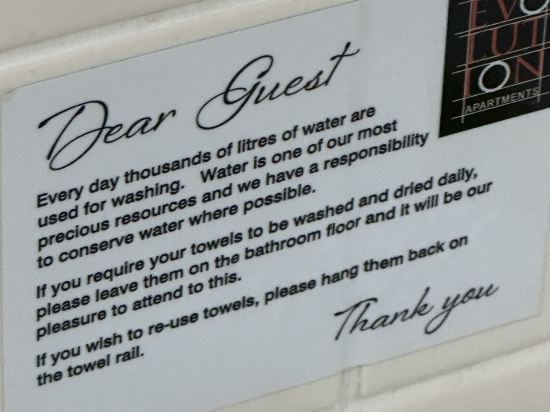 EVO
LUT
ION
APARTMENTS
Dear Guest
Every day thousands of litres of water are
used for washing. Water is one of our most
precious resources and we have a responsibility
to conserve water where possible.
If you require your towels to be washed and dried daily,
please leave them on the bathroom floor and it will be our
pleasure to attend to this.
If you wish to re-use towels, please hang them back on
the towel rail.
Thank you